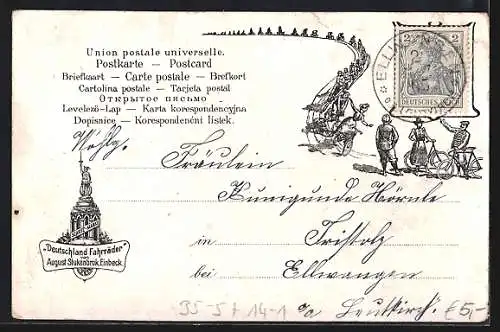 Union postale universelle.
Postkarte — Postcard
Briefkaart — Carte postale — Brefkort
Cartolina postale — Tarjeta postal
Открытое письмо
Levelező-Lap — Karta korespondencyjna
Dopisnice — Korespondenční lístek.
2 2
DEUTSCHES REICH
ELLW
Wohlg.
Fräulein
Kunigunde Hörnle
in
bei Ellwangen
a/a Leutkirch.
"Deutschland Fahrräder"
August Stukenbrok, Einbeck.
35-5+ 14-1
€5,-